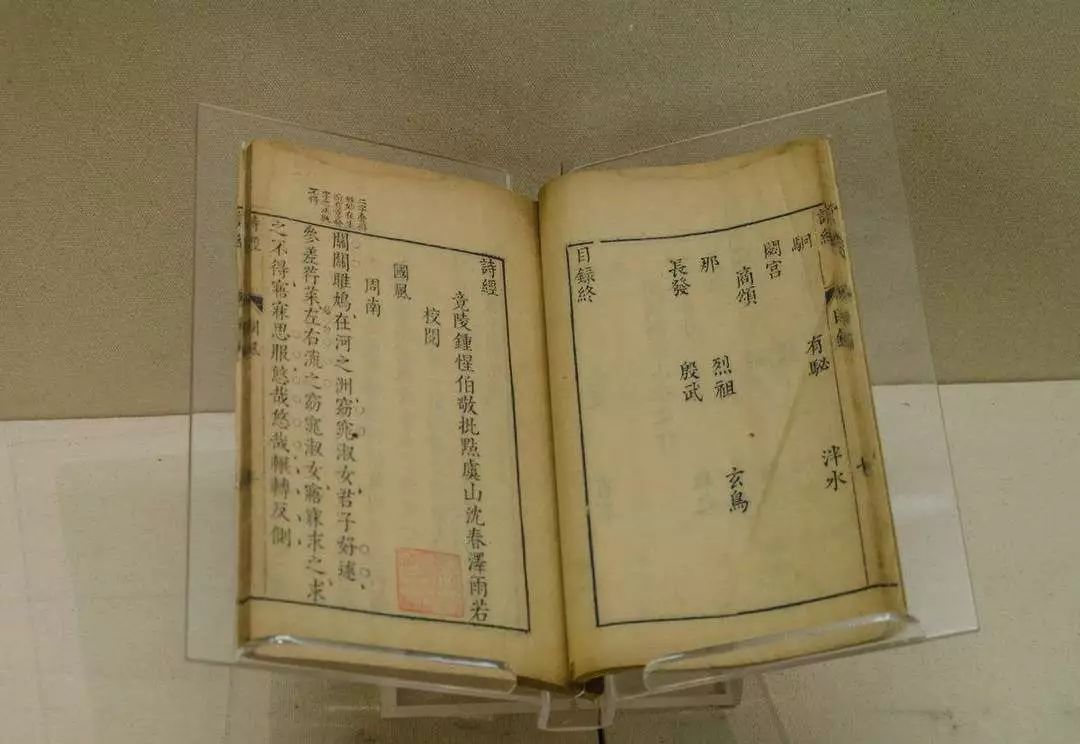 詩經
駉 有駜 泮水
閟宮
商頌
那 烈祖 玄鳥
長發 殷武
目録終
詩經
竟陵鍾惺伯敬批點虞山沈春澤雨若
校閱
國風
周南
關關雎鳩、在河之洲、窈窕淑女、君子好逑、
參差荇菜、左右流之、窈窕淑女、寤寐求之、求
之不得、寤寐思服、悠哉悠哉、輾轉反側
詩經
國風